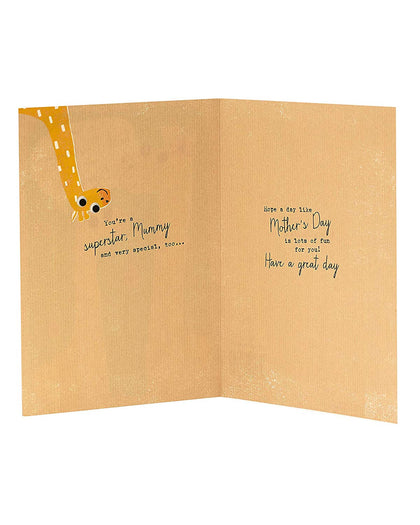 You're a
superstar, Mummy
and very special, too...
Hope a day like
Mother's Day
is lots of fun
for you!
Have a great day